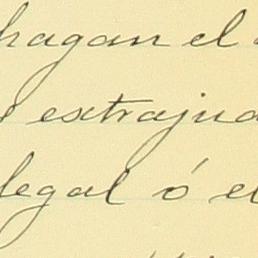 hagan el
extraju
legal ó el